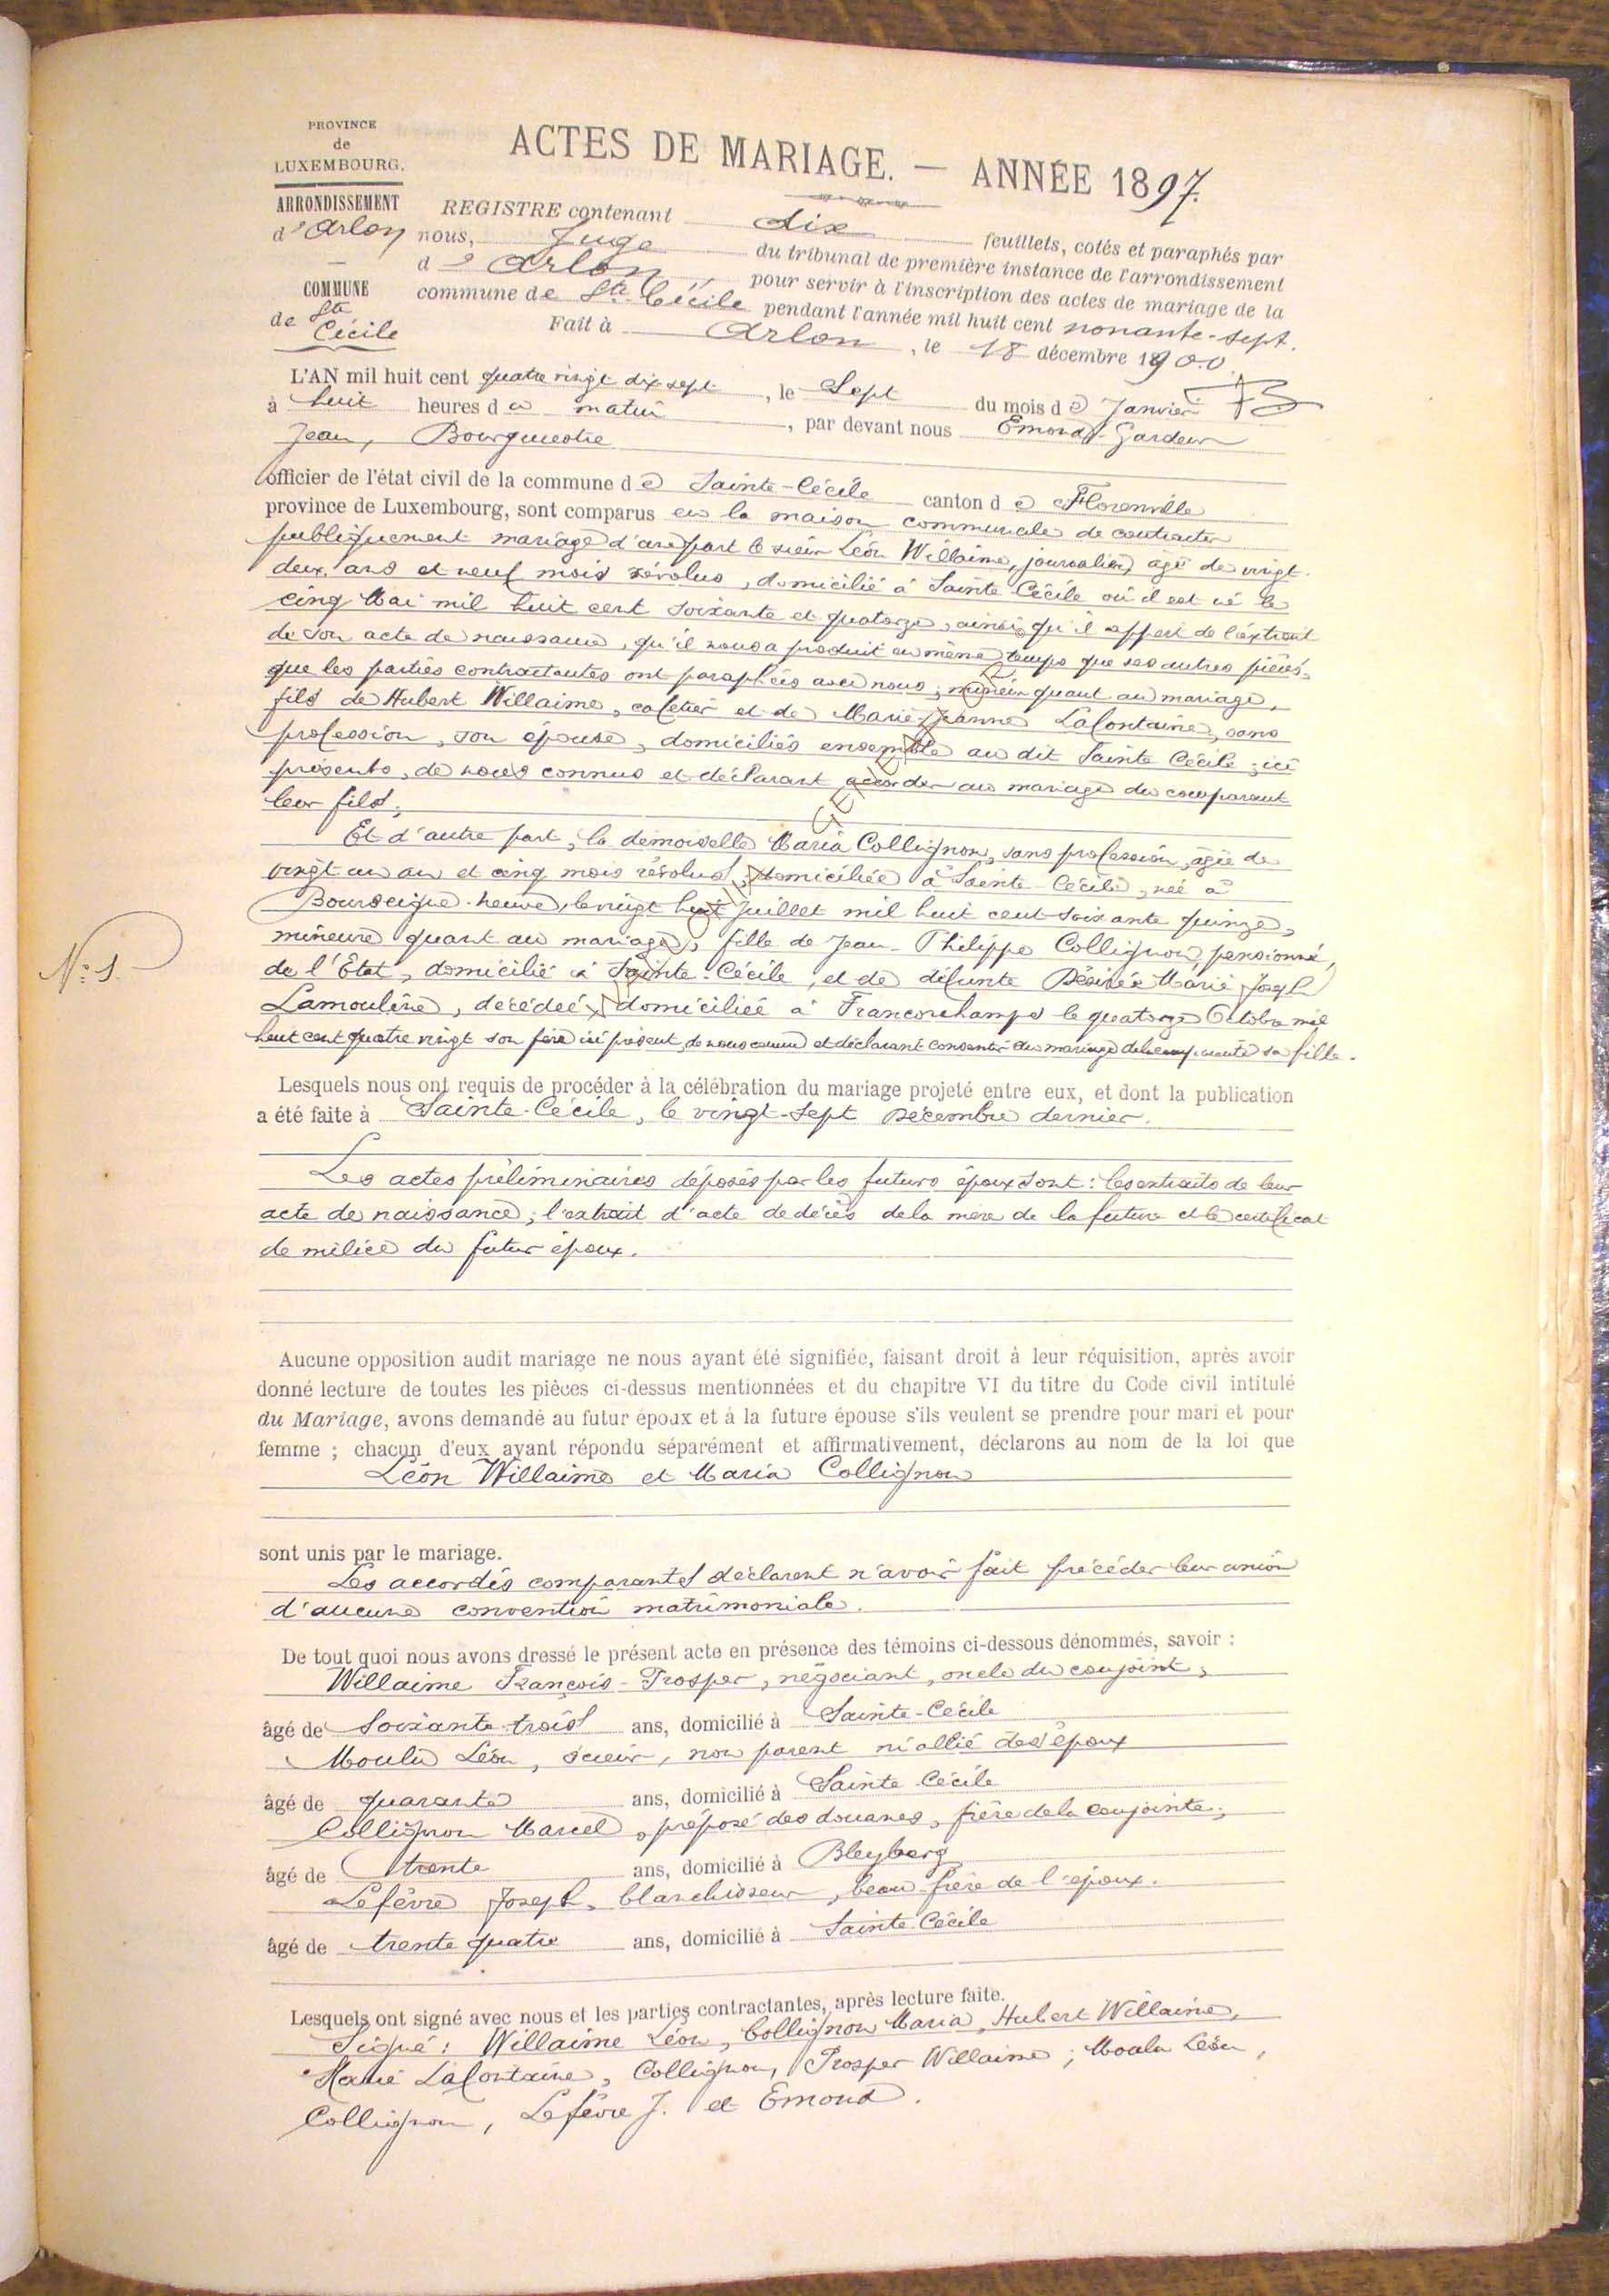 PROVINCE
de
LUXEMBOURG.
ARRONDISSEMENT
d'Arlon
COMMUNE
de Ste
Cécile
ACTES DE MARIAGE. — ANNÉE 1897.
REGISTRE contenant dix feuillets, cotés et paraphés par
nous, Juge du tribunal de première instance de l'arrondissement
d'Arlon pour servir à l'inscription des actes de mariage de la
commune de Ste Cécile pendant l'année mil huit cent nonante-sept.
Fait à Arlon, le 18 décembre 1900.
L'AN mil huit cent quatre vingt dix sept, le Sept du mois de Janvier
à huit heures du matin, par devant nous Emond-Gardeur
Jean, Bourgmestre
officier de l'état civil de la commune de Sainte-Cécile canton de Florenville
province de Luxembourg, sont comparus en la maison communale de contracter
publiquement mariage d'une part le sieur Léon Willaime, journalier, âgé de vingt
deux ans et neuf mois révolus, domicilié à Sainte Cécile où il est né le
cinq Mai mil huit cent soixante et quatorze, ainsi qu'il appert de l'extrait
de son acte de naissance, qu'il nous a produit en même temps que ses autres pièces,
que les parties contractantes ont paraphées avec nous; mineur quant au mariage,
fils de Hubert Willaime, cafetier et de Marie-Jeanne Lafontaine, sans
profession, son épouse, domiciliés ensemble au dit Sainte Cécile; ici
présents, de nous connus et déclarant accorder au mariage du comparant
leur fils.
Et d'autre part, la demoiselle Maria Collignon, sans profession, âgée de
vingt un an et cinq mois révolus, domiciliée à Sainte-Cécile, née à
Bourseigne-Neuve, le vingt huit Juillet mil huit cent soixante quinze,
mineure quant au mariage, fille de Jean-Philippe Collignon, pensionné,
de l'Etat, domicilié à Sainte-Cécile, et de défunte Désirée Marie Joseph
Lamouline, décédée domiciliée à Francorchamps le quatorze Octobre mil
huit cent quatre vingt son père ici présent, de nous connu et déclarant consentir au mariage de la comparante sa fille.
N° 1.
Lesquels nous ont requis de procéder à la célébration du mariage projeté entre eux, et dont la publication
a été faite à Sainte-Cécile, le vingt-sept Décembre dernier.
Les actes préliminaires déposés par les futurs époux sont: les extraits de leur
acte de naissance; l'extrait d'acte de décès de la mère de la future et le certificat
de milice du futur époux.
Aucune opposition audit mariage ne nous ayant été signifiée, faisant droit à leur réquisition, après avoir
donné lecture de toutes les pièces ci-dessus mentionnées et du chapitre VI du titre du Code civil intitulé
du Mariage, avons demandé au futur époux et à la future épouse s'ils veulent se prendre pour mari et pour
femme ; chacun d'eux ayant répondu séparément et affirmativement, déclarons au nom de la loi que
Léon Willaime et Maria Collignon
sont unis par le mariage.
Les accordés comparants déclarent n'avoir fait précéder leur union
d'aucune convention matrimoniale.
De tout quoi nous avons dressé le présent acte en présence des témoins ci-dessous dénommés, savoir :
Willaime François-Prosper, négociant, oncle du conjoint,
âgé de Soixante-trois ans, domicilié à Sainte-Cécile
Moulin Léon, scieur, non parent ni allié des époux
âgé de quarante ans, domicilié à Sainte Cécile
Collignon Marcel, préposé des douanes, frère de la conjointe,
âgé de trente ans, domicilié à Bleyberg
Lefèvre Joseph, blanchisseur, beau-frère de l'époux.
âgé de trente quatre ans, domicilié à Sainte-Cécile
Lesquels ont signé avec nous et les parties contractantes, après lecture faite.
Signé: Willaime Léon, Collignon Maria, Hubert Willaime,
Marie Lafontaine, Collignon, Prosper Willaime; Moulin Léon,
Collignon, Lefèvre J. et Emond.